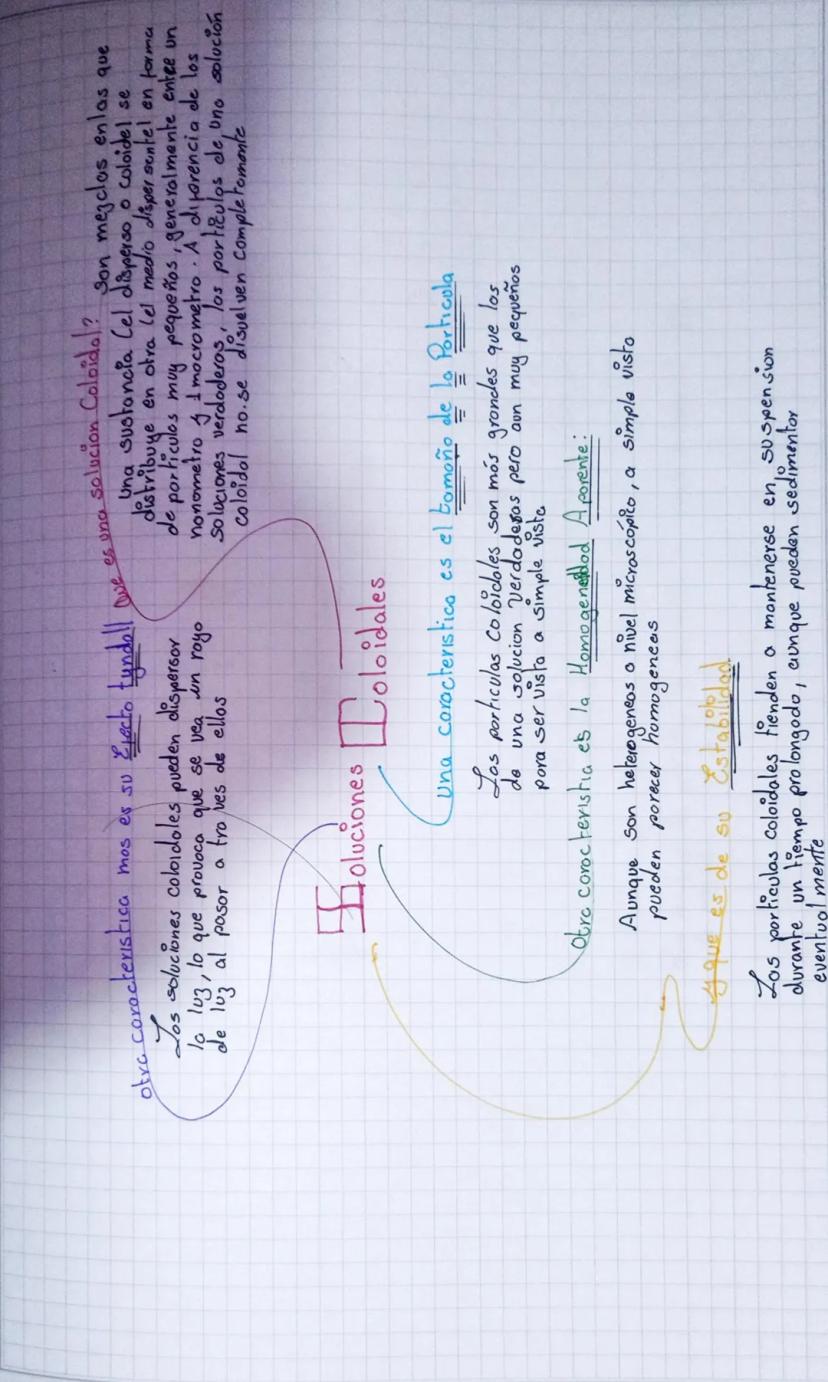 Soluciones Coloidales
Que es una solucion Coloidal?
Son mezclas en las que
una sustancia (el disperso o coloidel se
distribuye en otra (el medio dispersantel en forma
de particulas muy pequeños, generalmente entre un
nanometro y 1 macrometro. A diferencia de las
soluciones verdaderas, las particulas de una solución
coloidal no se disuelven completamente
otra caracteristica mas es su Efecto tyndall
Las soluciones coloidales pueden dispersar
la luz, lo que provoca que se vea un rayo
de luz al pasar a tra ves de ellas
una caracteristica es el tamaño de la Particula
Las particulas Coloidales son más grandes que las
de una solucion verdaderas pero aun muy pequeños
para ser vista a simple vista
otra caracteristia es la Homogeneidad Aparente:
Aunque son heterogeneas a nivel microscópico, a simple vista
pueden parecer homogeneas
y que es de su Estabilidad
Las particulas coloidales tienden a mantenerse en suspension
durante un tiempo prolongado, aunque pueden sedimentar
eventual mente